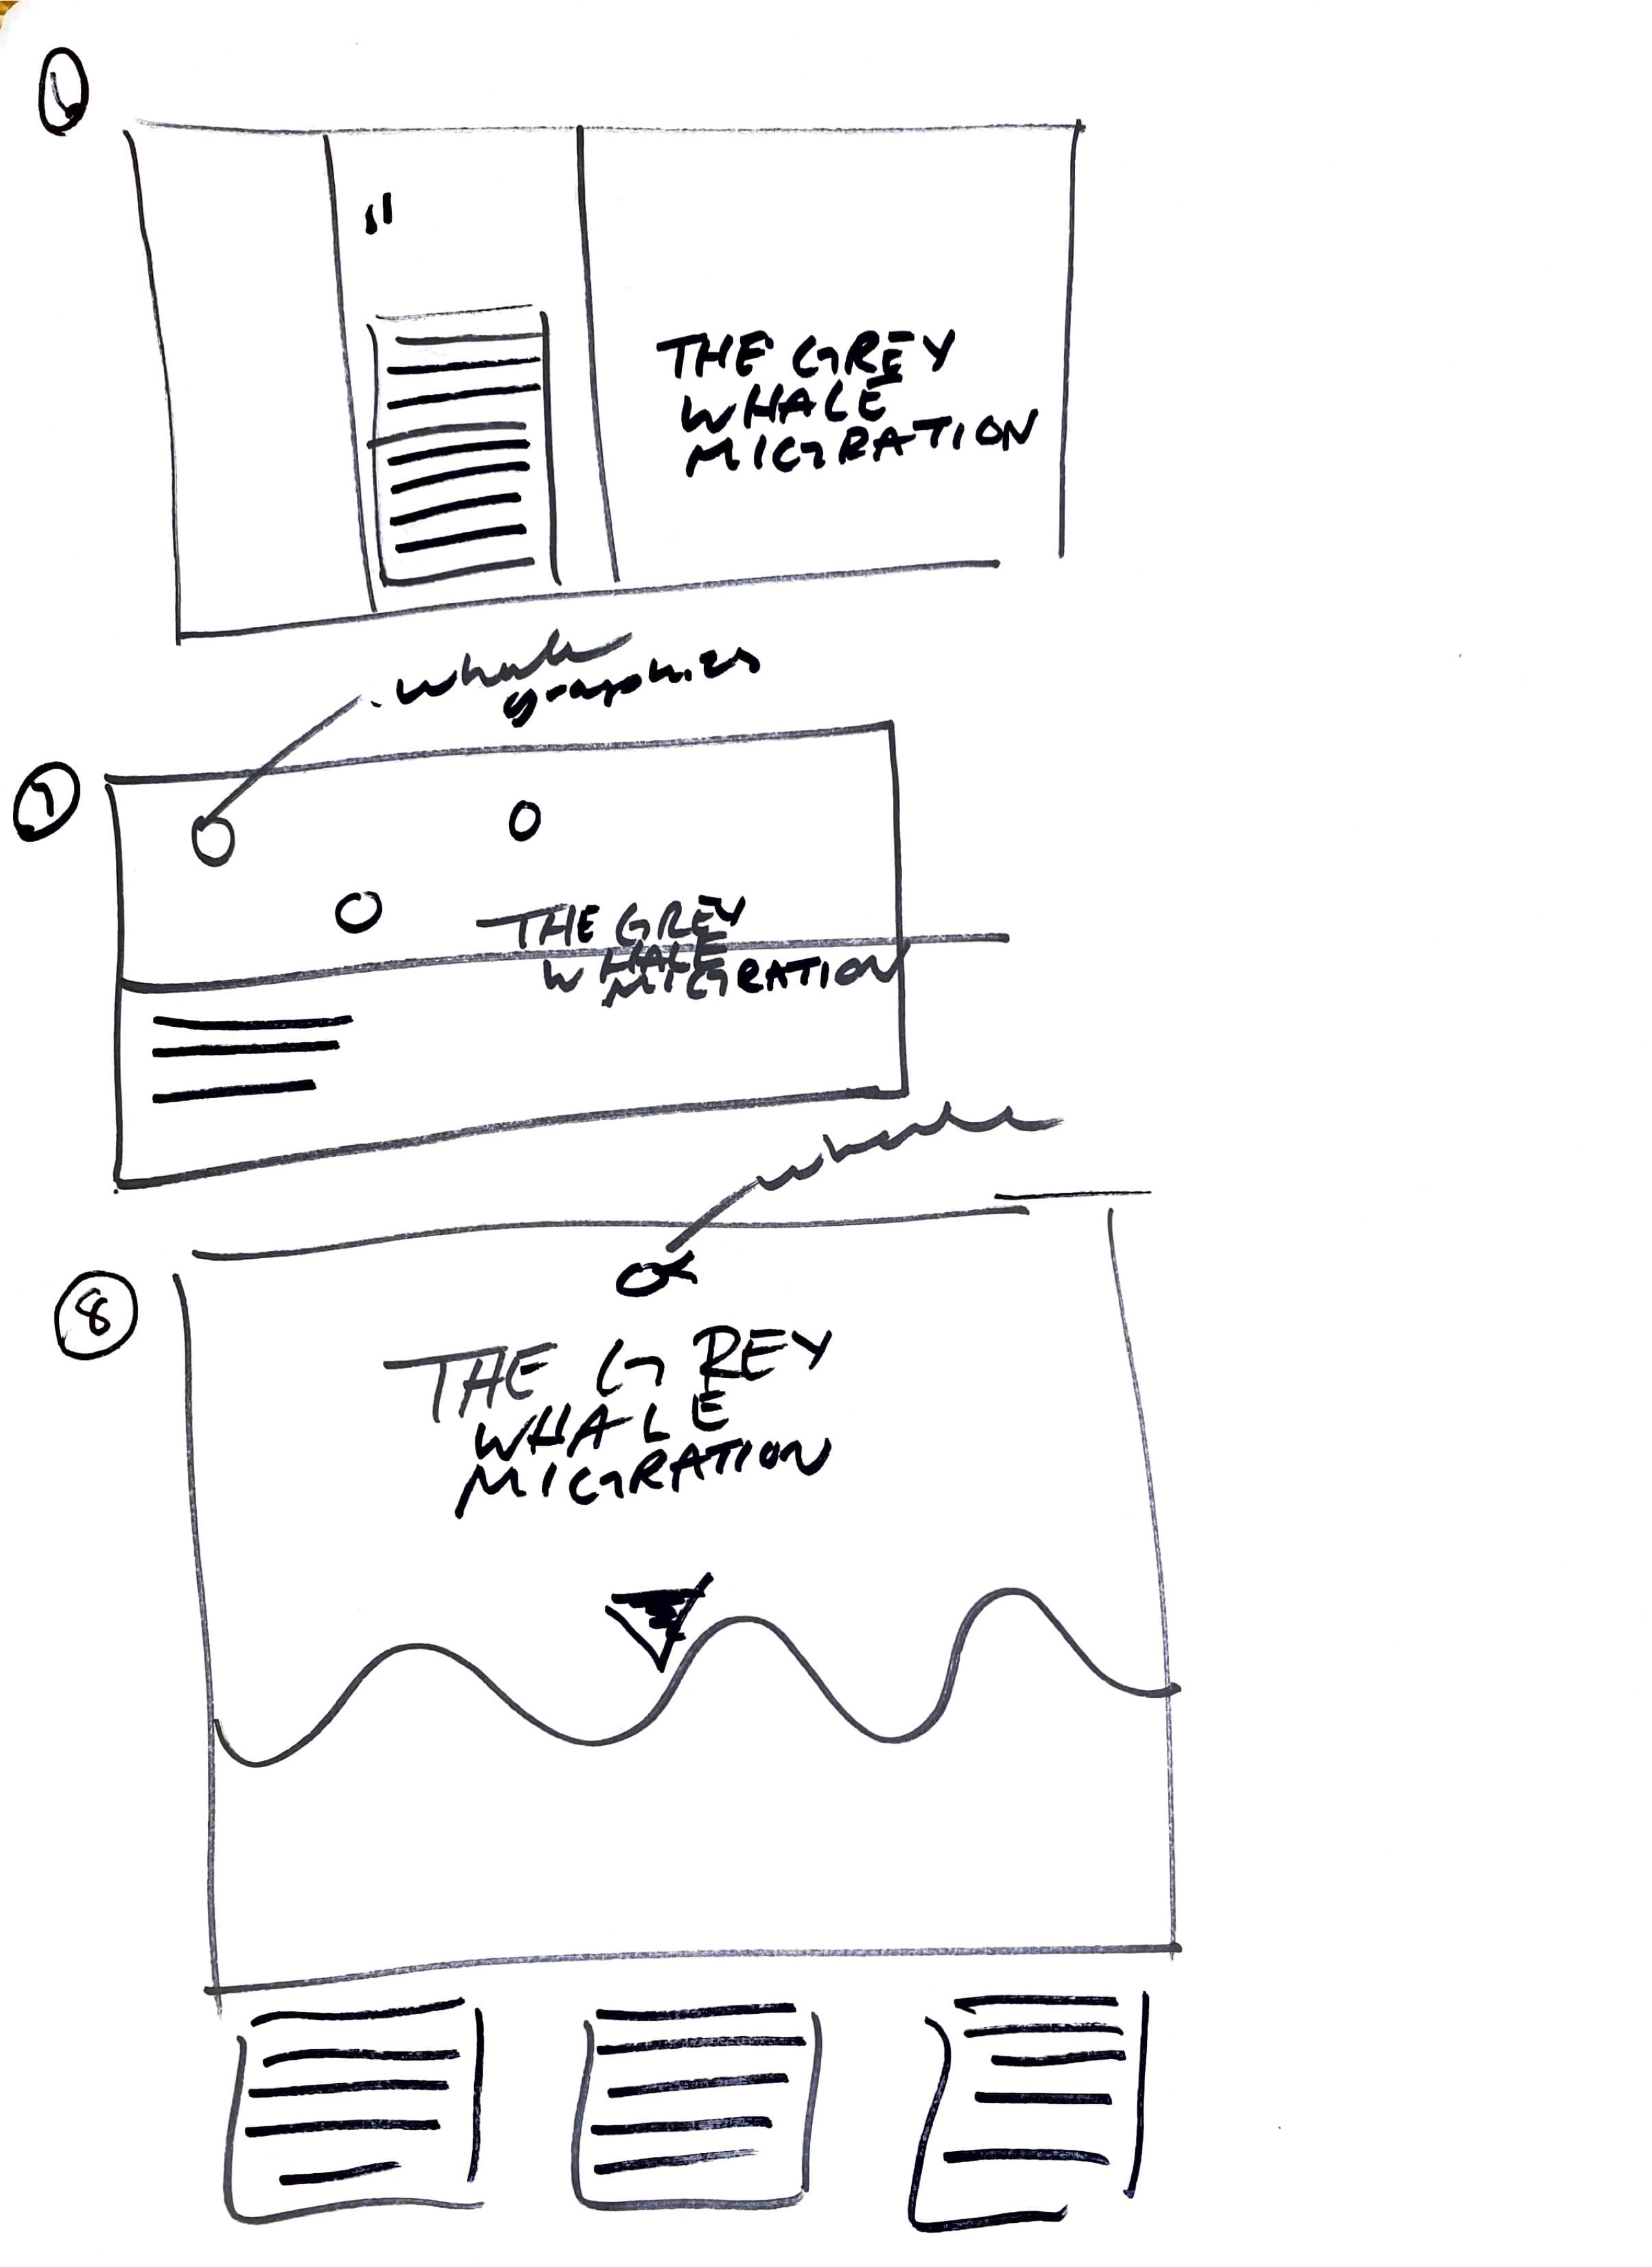 6
"
THE GREY
WHALE
MIGRATION
whale
graphics
7
THE GREY
WHALE
MIGRATION
whale
8
THE GREY
WHALE
MIGRATION